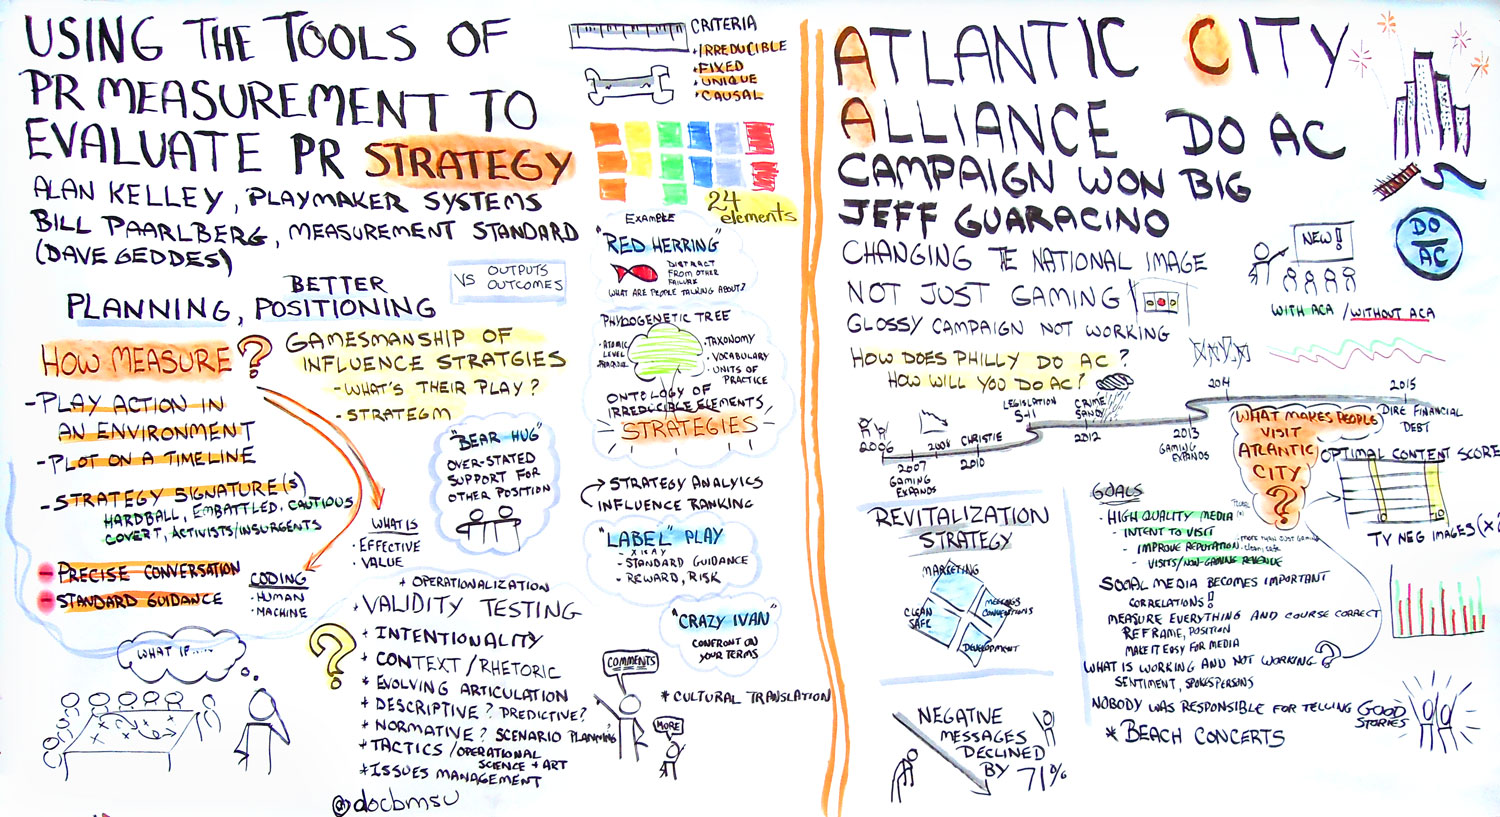 USING THE TOOLS OF
PR MEASUREMENT TO
EVALUATE PR STRATEGY
ALAN KELLEY, PLAYMAKER SYSTEMS
BILL PAARLBERG, MEASUREMENT STANDARD
(DAVE GEDDES)
CRITERIA
IRREDUCIBLE
FIXED
UNIQUE
CAUSAL
24
elements
BETTER
PLANNING, POSITIONING
VS OUTPUTS
OUTCOMES
HOW MEASURE ?
- PLAY ACTION IN
AN ENVIRONMENT
- PLOT ON A TIMELINE
- STRATEGY SIGNATURE(S)
HARDBALL, EMBATTLED, CAUTIOUS
COVERT, ACTIVISTS/INSURGENTS
- PRECISE CONVERSATION
- STANDARD GUIDANCE
GAMESMANSHIP OF
INFLUENCE STRATGIES
- WHAT'S THEIR PLAY?
- STRATEGM
"BEAR HUG"
OVER-STATED
SUPPORT FOR
OTHER POSITION
WHAT IS
• EFFECTIVE
• VALUE
CODING
• HUMAN
• MACHINE
WHAT IF.....
EXAMPLE
"RED HERRING"
DISTRACT
FROM OTHER
FAILURE
WHAT ARE PEOPLE TALKING ABOUT?
PHYLOGENETIC TREE
• ATOMIC
LEVEL
• TAXONOMY
• VOCABULARY
• UNITS OF
PRACTICE
ONTOLOGY OF
IRREDUCIBLE ELEMENTS
STRATEGIES
STRATEGY ANALYTICS
INFLUENCE RANKING
"LABEL" PLAY
- XRAY
- STANDARD GUIDANCE
- REWARD, RISK
"CRAZY IVAN"
CONFRONT ON
YOUR TERMS
+ OPERATIONALIZATION
+ VALIDITY TESTING
?
+ INTENTIONALITY
* CONTEXT / RHETORIC
* EVOLVING ARTICULATION
+ DESCRIPTIVE? PREDICTIVE?
* NORMATIVE? SCENARIO PLANNING
* TACTICS / OPERATIONAL
SCIENCE + ART
* ISSUES MANAGEMENT
COMMENTS
MORE
* CULTURAL TRANSLATION
@docbmsu
ATLANTIC CITY
ALLIANCE DO AC
CAMPAIGN WON BIG
JEFF GUARACINO
CHANGING TE NATIONAL IMAGE
NOT JUST GAMING
GLOSSY CAMPAIGN NOT WORKING
HOW DOES PHILLY DO AC?
HOW WILL YOU DO AC?
NEW!
DO
AC
WITH ACA / WITHOUT ACA
2006
2007
GAMING
EXPANDS
2008
CHRISTIE
2010
LEGISLATION
5-11
CRIME
SANDY
2012
2013
GAMING
EXPANDS
2014
2015
DIRE FINANCIAL
DEBT
WHAT MAKES PEOPLE
VISIT
ATLANTIC
CITY
?
OPTIMAL CONTENT SCORE
10
TV NEG IMAGES
REVITALIZATION
STRATEGY
MARKETING
CLEAN
SAFE
MEETINGS
CONVENTIONS
DEVELOPMENT
GOALS
• HIGH QUALITY MEDIA
- INTENT TO VISIT
- IMPROVE REPUTATION - MORE THAN JUST GAMING
clean, safe
- VISITS/NON-GAMING REVENUE
SOCIAL MEDIA BECOMES IMPORTANT
CORRELATIONS!
MEASURE EVERYTHING AND COURSE CORRECT
REFRAME, POSITION
MAKE IT EASY FOR MEDIA
WHAT IS WORKING AND NOT WORKING ?
SENTIMENT, SPOKESPERSONS
NOBODY WAS RESPONSIBLE FOR TELLING GOOD
STORIES
* BEACH CONCERTS
NEGATIVE
MESSAGES
DECLINED
BY 71%